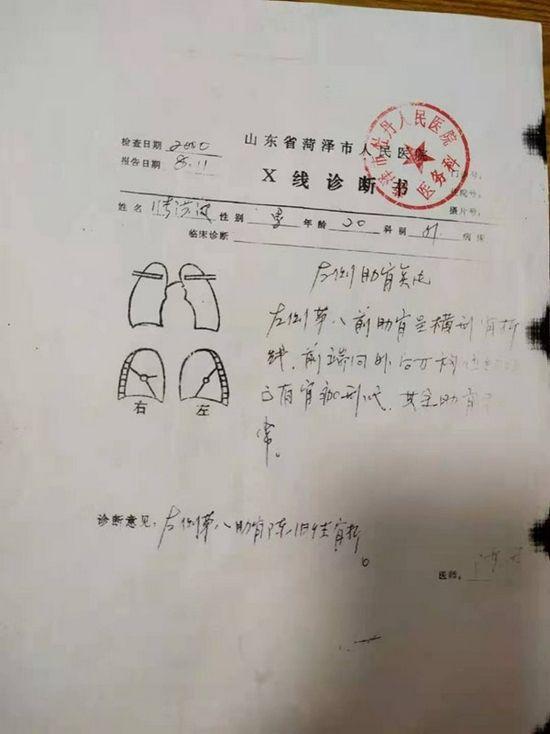 检查日期 2000 山东省菏泽市人民医
报告日期 8.11 X线诊断书
市牡丹人民医院
医务科
院号:
摄片号:
姓名 性别 男 年龄 20 科别 外 病床
临床诊断
左侧肋骨
左侧第八前肋骨呈横形骨折
线.前端向外后方
已有骨痂形成.其余肋骨
常。
右 左
诊断意见: 左侧第八肋骨陈旧性骨折。
医师: